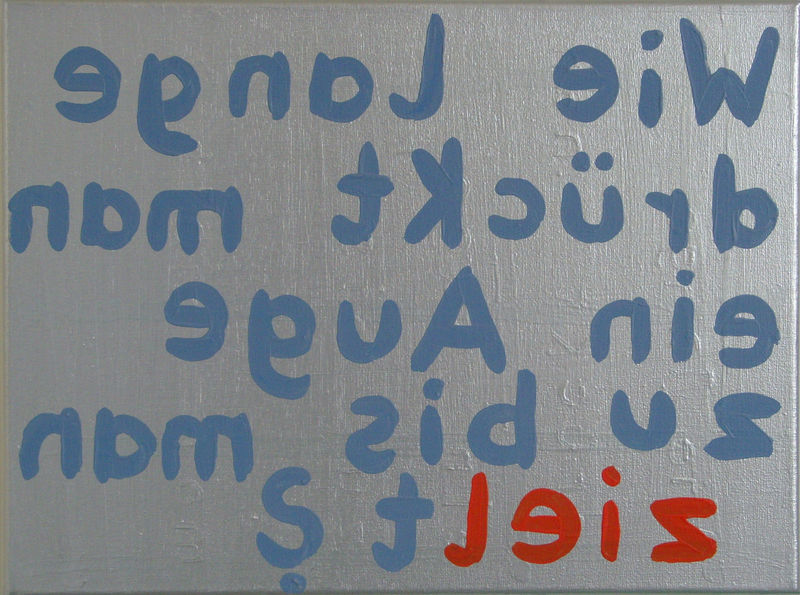 Wie Lange
drückt man
ein Auge
zu bis man
zielt ?